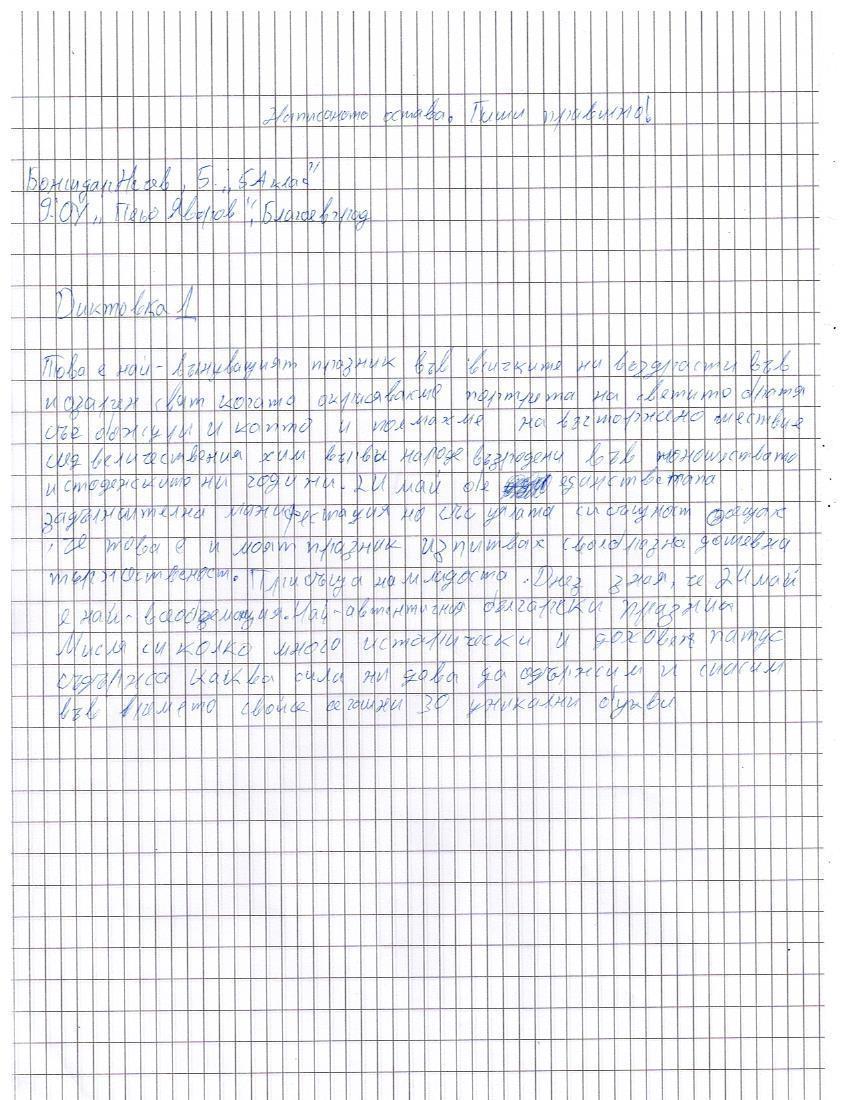 Написаното остава. Пиши правилно!
Божидар Несев, 5. "5А клас"
9. ОУ "Пейо Яворов", Благоевград
Диктовка 1
Това е най-вълнуващият празник във всичките ни возрасти във
и озарен свят когата окрисявахме портрета на светито братя
със божури и която и помахме на възторжено шествие
след величествения хим върви народе възродени във юношествато
и стоденскито ни години. 24 май бе единствената
задължителна манифестация но със цялата си същност усещах
, че това е и моят празник изпитвах своеобразна дошевна
тържественост. Присъща на младоста. Днез зная, че 24 май
е най-всеобземащия. Най-автентичния български празник
Мисля си колко много исторически и доховен патус
съдържа каква сила ни дава да одържим и спасим
във времето свойте сегашни 30 уникални букви